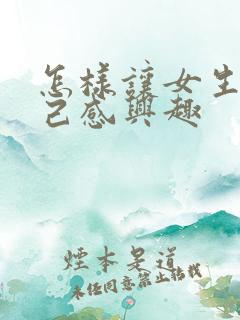 怎樣讓女生
己感興趣
煙本是道
未任同意禁止转载